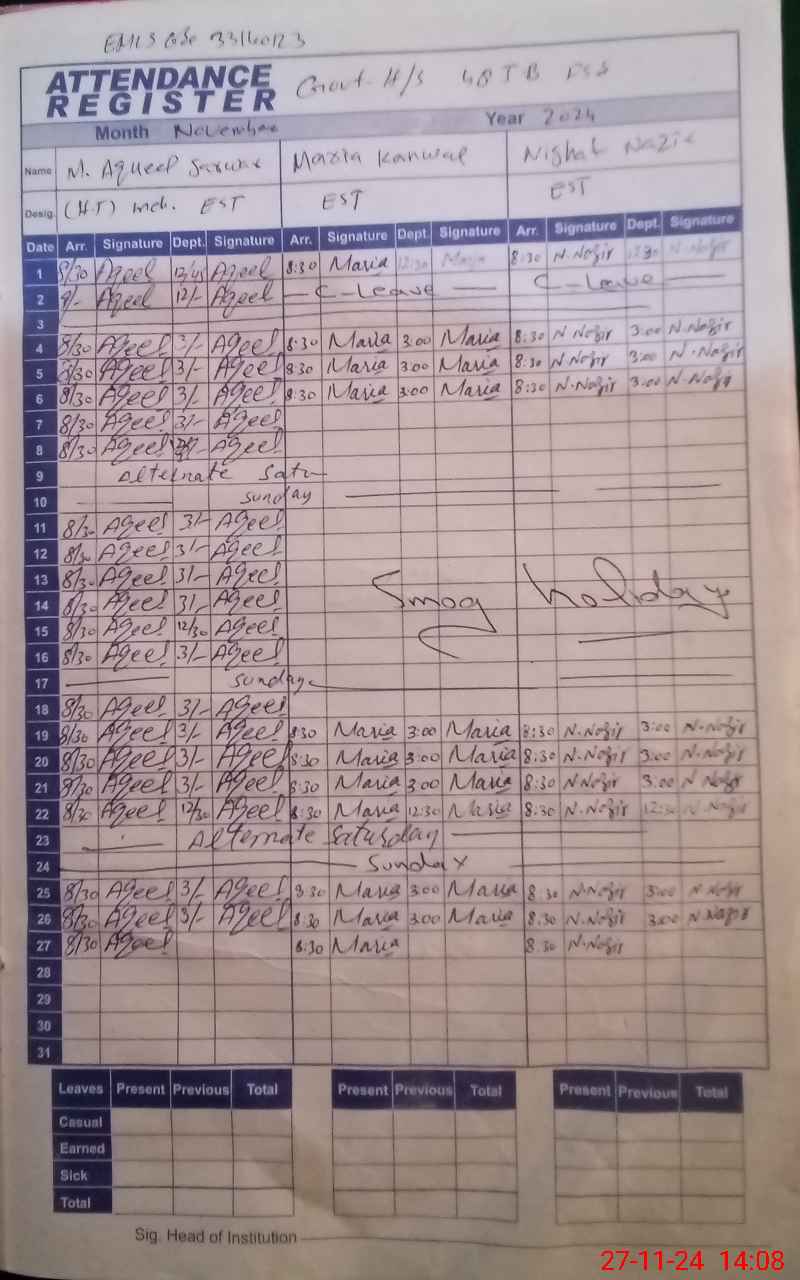 EMIS Code 33160123
ATTENDANCE REGISTER Govt. H/S 48 TB
Month November Year 2024
Name M. Aqueel Sarwar Maria Kanwal Nighat Nazir
Desig. (H.T) Inch. EST EST EST
Date Arr. Signature Dept. Signature Arr. Signature Dept. Signature Arr. Signature Dept. Signature
1 8/30 Aqeel 12/45 Aqeel 8:30 Maria 12:30 Maria 8:30 N.Nazir 12:30 N.Nazir
2 9/- Aqeel 12/- Aqeel — C-Leave — C-Leave —
3
4 8/30 Aqeel 3/- Aqeel 8:30 Maria 3:00 Maria 8:30 N.Nazir 3:00 N.Nazir
5 8/30 Aqeel 3/- Aqeel 8:30 Maria 3:00 Maria 8:30 N.Nazir 3:00 N.Nazir
6 8/30 Aqeel 3/- Aqeel 8:30 Maria 3:00 Maria 8:30 N.Nazir 3:00 N.Nazir
7 8/30 Aqeel 3/- Aqeel
8 8/30 Aqeel Aqeel
9 Alternate Satu
10 Sunday
11 8/30 Aqeel 3/- Aqeel
12 8/30 Aqeel 3/- Aqeel
13 8/30 Aqeel 3/- Aqeel
14 8/30 Aqeel 3/- Aqeel Smog holiday
15 8/30 Aqeel 12/30 Aqeel
16 8/30 Aqeel 3/- Aqeel
17 Sunday
18 8/30 Aqeel 3/- Aqeel
19 8/30 Aqeel 3/- Aqeel 8:30 Maria 3:00 Maria 8:30 N.Nazir 3:00 N.Nazir
20 8/30 Aqeel 3/- Aqeel 8:30 Maria 3:00 Maria 8:30 N.Nazir 3:00 N.Nazir
21 8/30 Aqeel 3/- Aqeel 8:30 Maria 3:00 Maria 8:30 N Nazir 3:00 N Nazir
22 8/30 Aqeel 12/30 Aqeel 8:30 Maria 12:30 Maria 8:30 N.Nazir 12:30 N.Nazir
23 Alternate Saturday
24 Sunday
25 8/30 Aqeel 3/- Aqeel 8:30 Maria 3:00 Maria 8:30 N.Nazir 3:00 N.Nazir
26 8/30 Aqeel 3/- Aqeel 8:30 Maria 3:00 Maria 8:30 N.Nazir 3:00 N.Nazir
27 8/30 Aqeel 8:30 Maria 8:30 N.Nazir
28
29
30
31
Leaves Present Previous Total Present Previous Total Present Previous Total
Casual
Earned
Sick
Total
Sig. Head of Institution
27-11-24 14:08